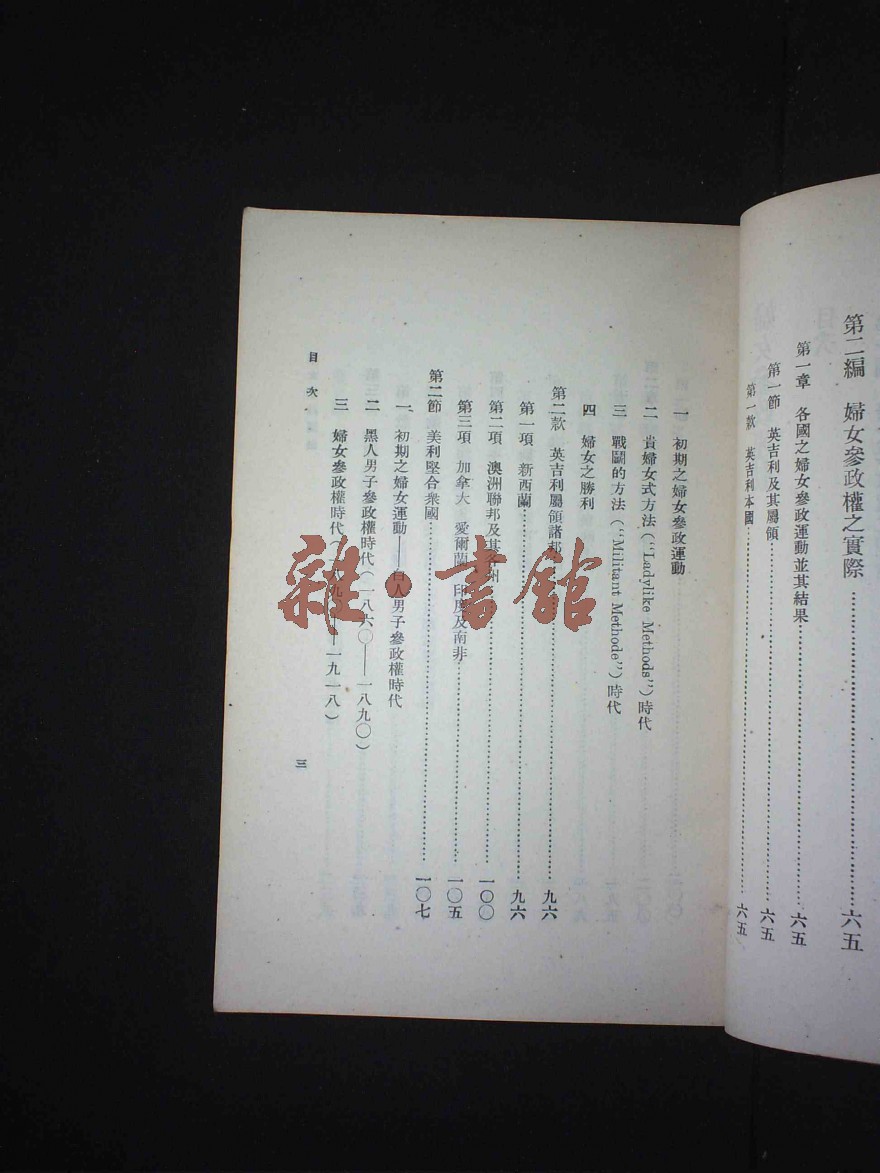 第二編　婦女參政權之實際……六五
第一章　各國之婦女參政運動並其結果……六五
第一節　英吉利及其屬領……六五
第一款　英吉利本國……六五
一　初期之婦女參政運動
二　貴婦女式方法(“Ladylike Methods”)時代
三　戰鬭的方法(“Militant Methode”)時代
四　婦女之勝利
第二款　英吉利屬領諸邦……九六
第一項　新西蘭……九六
第二項　澳洲聯邦及其各州……一〇〇
第三項　加拿大　愛爾蘭　印度及南非……一〇五
第二節　美利堅合衆國……一〇七
一　初期之婦女運動——白人男子參政權時代
二　黑人男子參政權時代(一八六〇——一八九〇)
三　婦女參政權時代(一八九〇——一九一八)
目次
三
雜·書館